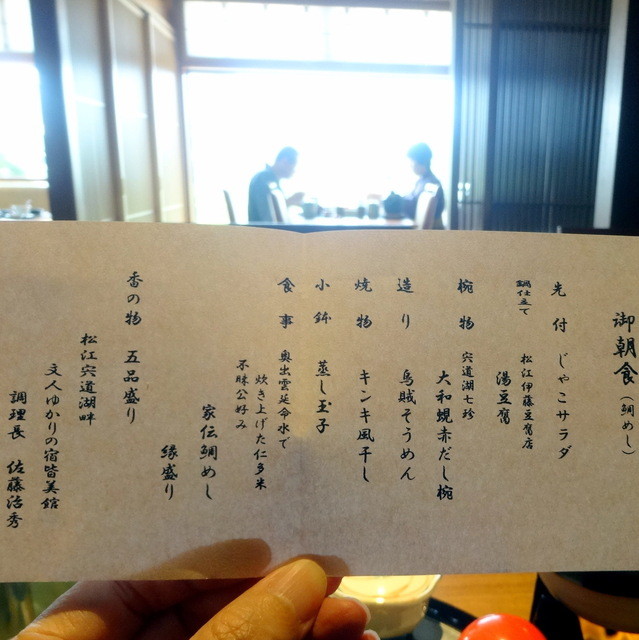 御朝食（鯛めし）
先付　じゃこサラダ
鍋仕立て　松江伊藤豆腐店
湯豆腐
椀物　宍道湖七珍
大和蜆赤だし椀
造り　烏賊そうめん
焼物　キンキ風干し
小鉢　蒸し玉子
食事　奥出雲延命水で
炊き上げた仁多米
不昧公好み
家伝鯛めし
縁盛り
香の物　五品盛り
松江宍道湖畔
文人ゆかりの宿皆美館
調理長　佐藤浩秀